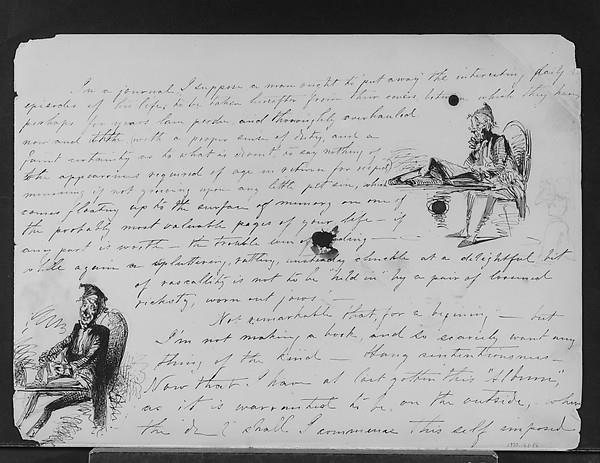 In a journal I suppose a man ought to put away the interesting daily
episodes of his life, to be taken hereafter from their covers between which they have
perhaps for years lain perdu, and thoroughly overhauled
now and with a proper sense of duty, and a
faint certainty as to what is dram't to say nothing of
the appearances required of age in return for respect
mourning if not groaning upon any little pet sin, which
comes floating up to the surface of memory on one of
the probably most valuable pages of your life – if
any part is worth – the trouble of reading –
while again a spluttering, rattley, unsteady chuckle at a delightful bit
of rascallity is not to be "held in" by a pair of loosened
rickety, worn out jaws. –
Not remarkable that, for a begining – but
I'm not making a book, and so scarcely want any
thing of the kind – Hang sententiousness –
Now that I have at last gotten this "Album",
as it is warranted to be, on the outside, when
the d— l shall I commence this self imposed